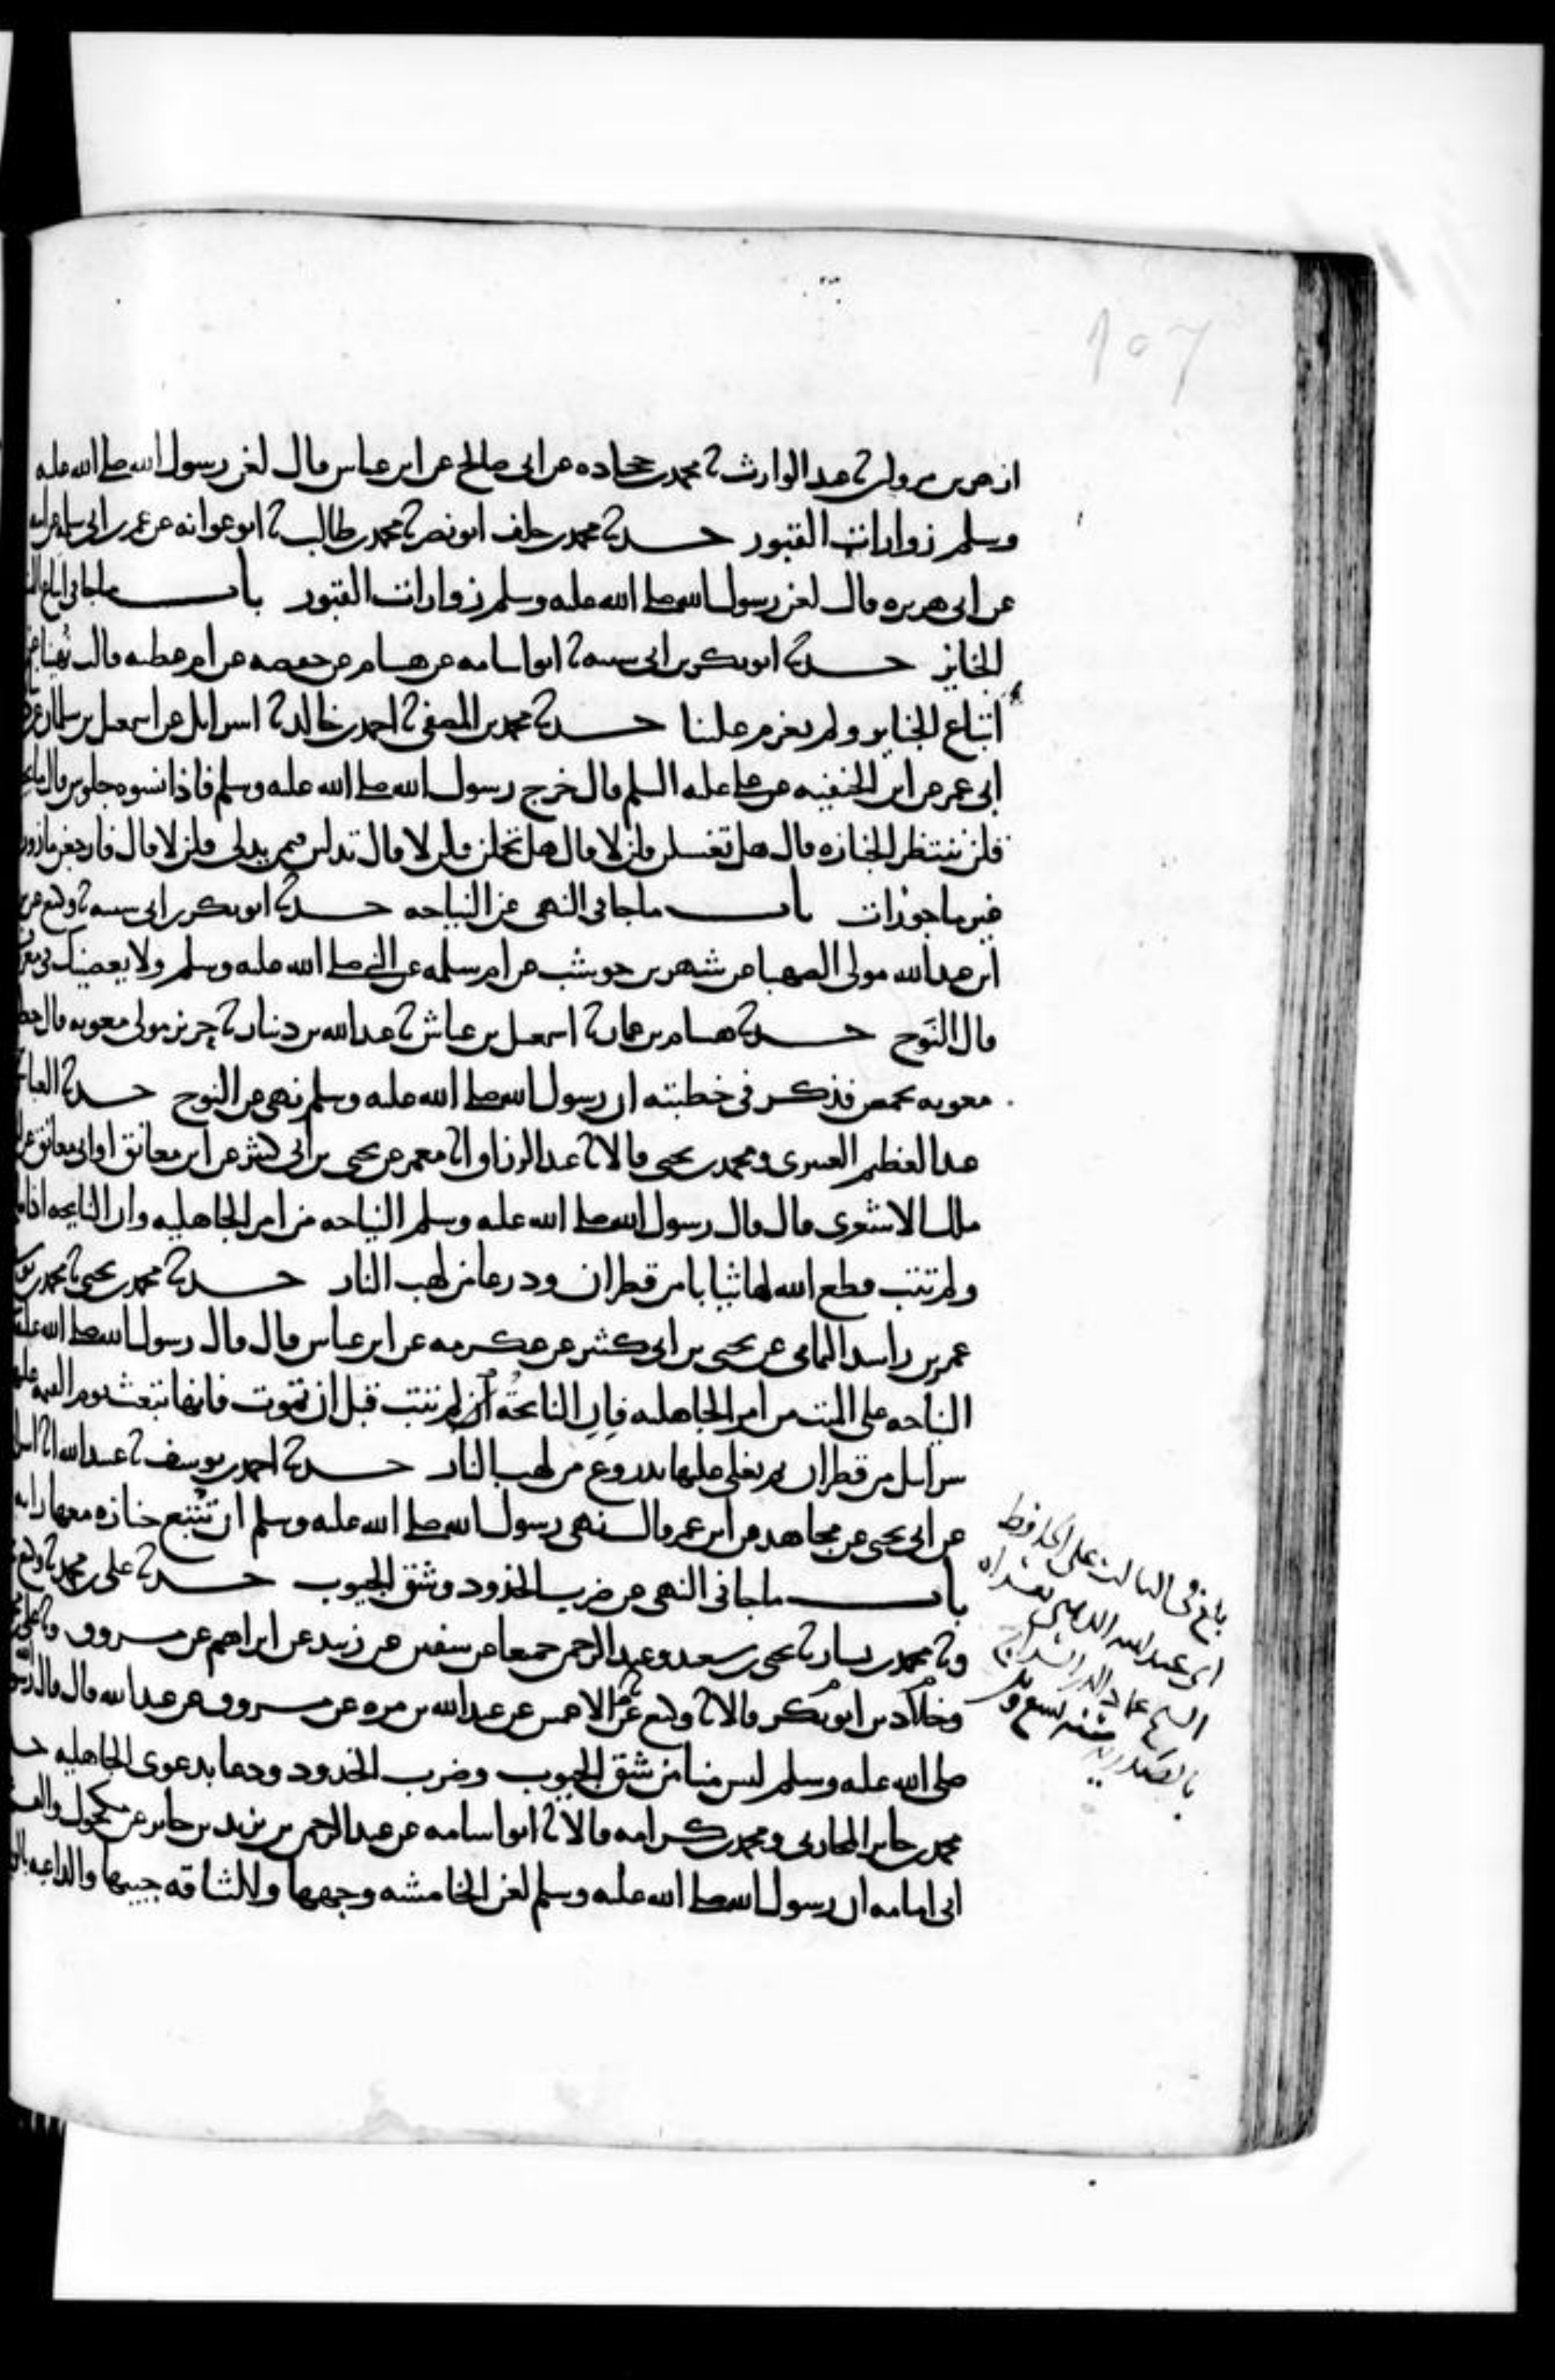 107
ازهر بن مروان ثا عبد الوارث ثا محمد بن جحاده عن ابي صالح عن ابن عباس قال لعن رسول الله صلى الله عليه
وسلم زوارات القبور حدثنا محمد بن خلف ابو نصر ثا محمد بن طالب ثا ابو عوانه عن عمر بن ابي سلمه عن ابيه
عن ابي هريره قال لعن رسول الله صلى الله عليه وسلم زوارات القبور باب ما جا في اتباع
الجنايز حدثنا ابو بكر بن ابي شيبه ثا ابو اسامه عن هشام عن حفصه عن ام عطيه قالت نهينا عن
اتباع الجنايز ولم يعزم علينا حدثنا محمد بن المصفى ثا احمد بن خالد ثا اسرائل عن اسمعيل بن سلمان عن
ابي عمر عن ابن الحنفيه عن علي عليه السلم قال خرج رسول الله صلى الله عليه وسلم فاذا نسوه جلوس قال ما
قلن ننتظر الجنازه قال هل تغسلن قلن لا قال هل تحملن قلن لا قال تدلين فيمن يدلي قلن لا قال فارجعن مازورات
غير ماجورات باب ما جا في النهي عن النياحه حدثنا ابو بكر بن ابي شيبه ثا وكيع عن
ابن عبد الله مولى الصهبا عن شهر بن حوشب عن ام سلمه عن النبي صلى الله عليه وسلم ولا يعصينك في معروف
قال النوح حدثنا هشام بن عمار ثا اسمعيل بن عياش ثا عبد الله بن دينار ثا جرير مولى معويه قال خطب
معويه بحمص فذكر في خطبته ان رسول الله صلى الله عليه وسلم نهى عن النوح حدثنا العباس
عبد العظيم العنبري ومحمد بن يحيى قالا ثا عبد الرزاق انا معمر عن يحيى بن ابي كثير عن ابن معانق او ابي معانق عن
ملك الاشعري قال قال رسول الله صلى الله عليه وسلم النياحه من امر الجاهليه وان النايحه اذا
ولم تتب قطع الله لها ثيابا من قطران ودرعا من لهب النار حدثنا محمد بن يحيى ثا محمد بن
عمر بن راشد اليمامي عن يحيى بن ابي كثير عن عكرمه عن ابن عباس قال قال رسول الله صلى الله عليه
النياحه على الميت من امر الجاهليه فان النايحة ان لم تتب قبل ان تموت فانها تبعث يوم القيمه عليها
سرابيل من قطران ثم يغلى عليها بدروع من لهب النار حدثنا احمد بن يوسف ثا عبيد الله انا
عن ابي يحيى عن مجاهد عن ابن عمر قال نهى رسول الله صلى الله عليه وسلم ان تتبع جنازه معها رانه
باب ما جا في النهي عن ضرب الخدود وشق الجيوب حدثنا علي بن محمد ثا وكيع
وثا محمد بن بشار ثا يحيى بن سعيد وعبد الرحمن جميعا عن سفين عن زبيد عن ابراهيم عن مسروق وثا علي بن
وخلاد بن ابو بكر قالا ثا وكيع عن الاعمش عن عبد الله بن مره عن مسروق عن عبد الله قال قال رسول
صلى الله عليه وسلم ليس منا من شق الجيوب وضرب الخدود ودعا بدعوى الجاهليه
محمد بن جابر المحاربي ومحمد بن كرامه قالا ثا ابو اسامه عن عبد الرحمن بن يزيد بن جابر عن مكحول
ابي امامه ان رسول الله صلى الله عليه وسلم لعن الخامشه وجهها والشاقه جيبها والداعيه
بلغ في الثالث على الحافظ
ابي عبد الله الذهبي
الشيخ عماد الدين